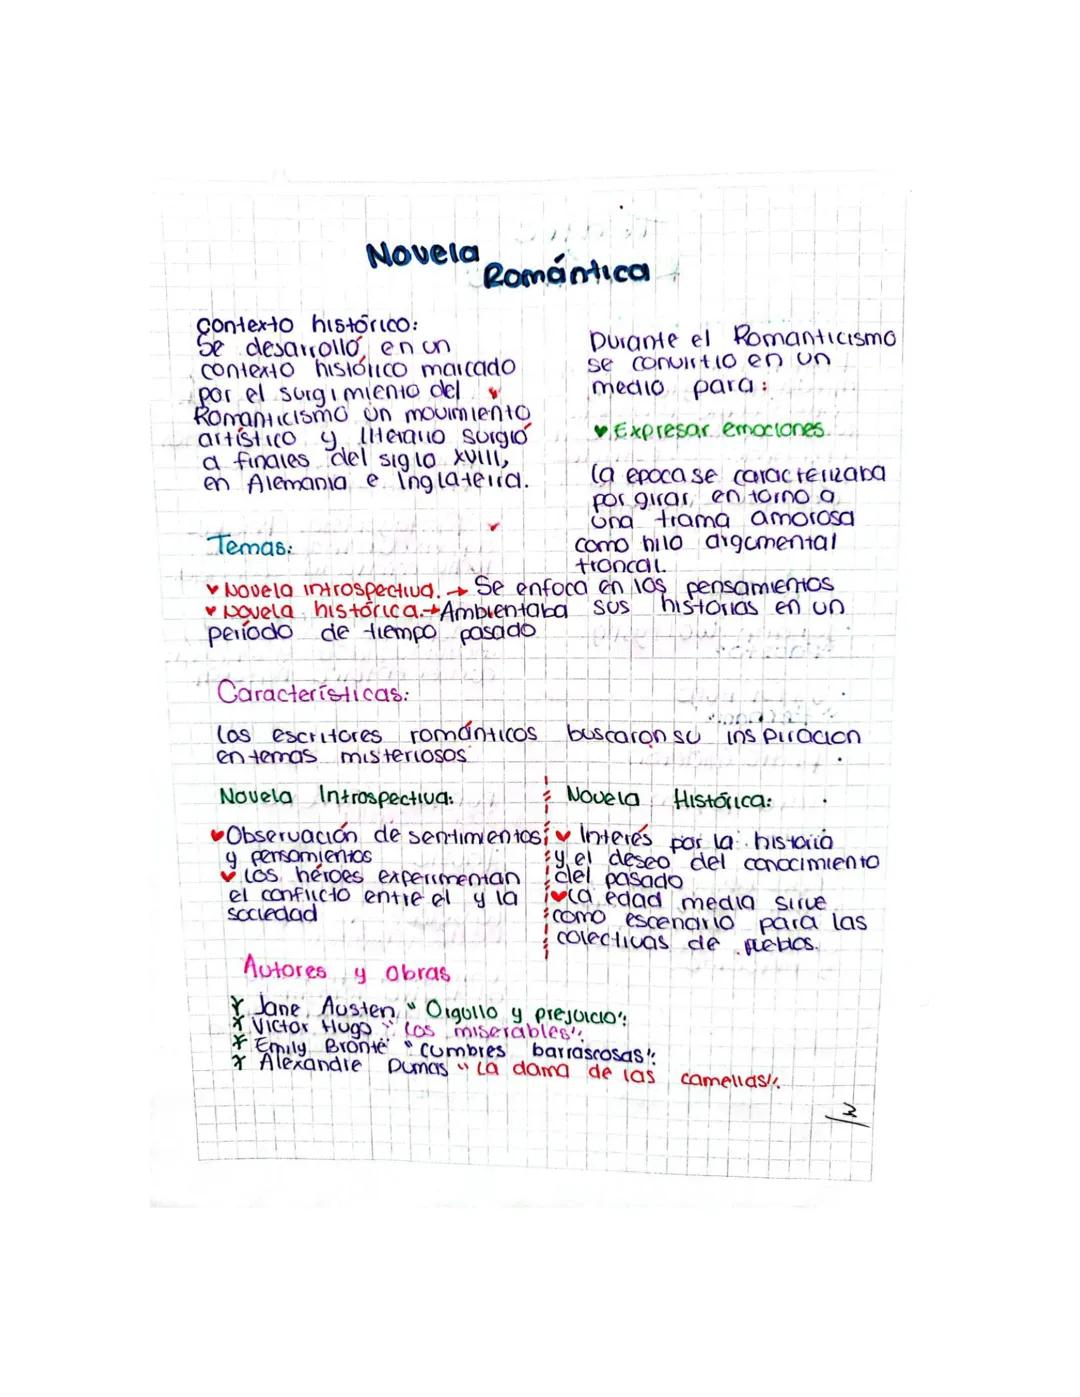 Novela
Romántica
Contexto histórico:
Se desarrolló en un
contexto histórico marcado
por el surgimiento del
Romanticismo un movimiento
artístico y literario surgió
a finales del siglo XVIII,
en Alemania e Inglaterra.
Durante el Romanticismo
se convirtio en un
medio para:
♥ Expresar emociones
la epoca se caracterizaba
por girar en torno a
una trama amorosa
como hilo argumental
troncal.
Temas:
♥ Novela introspectiva. → Se enfoca en los pensamientos
♥ Novela histórica. → Ambientaba sus historias en un
período de tiempo pasado
Características:
Los escritores románticos buscaron su inspiracion
en temas misteriosos
Novela Introspectiva:
♥ Observación de sentimientos
y pensamientos
♥ Los héroes experimentan
el conflicto entre el y la
sociedad
Novela Histórica:
♥ Interés por la historia
y el deseo del conocimiento
del pasado
♥ La edad media sirve
como escenario para las
colectivas de pueblos.
Autores y obras
Jane Austen "Orgullo y prejuicio".
Victor Hugo "Los miserables".
Emily Brontë "cumbres barrascosas".
Alexandre Dumas "La dama de las camelias".